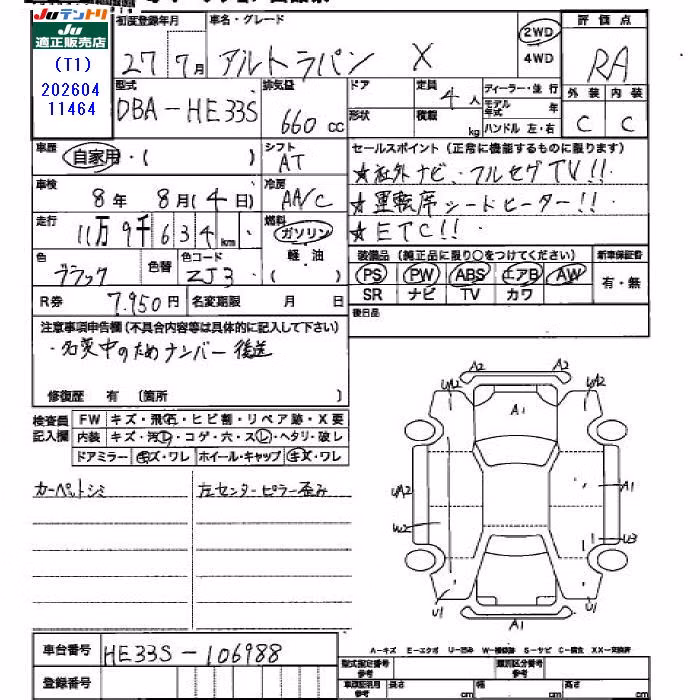 Juテントリ
Ju
適正販売店
(T1)
202604
11464
初度登録年月
27年7月
車名・グレード
アルトラパン X
2WD
4WD
評価点
RA
外装 内装
C C
型式
DBA-HE33S
排気量
660 cc
ドア
形状
定員
4人
積載
kg
ディーラー・並行
モデル年式 年
ハンドル 左・右
車歴
自家用・( )
シフト
AT
セールスポイント (正常に機能するものに限ります)
★社外ナビ、フルセグTV!!
★運転席シードヒーター!!
★ETC!!
車検
8年 8月(4日)
冷房
AA/C
走行
11万9千634km
燃料
ガソリン
軽油
( )
色
ブラック
色替
色コード
ZJ3
装備品 (純正品に限り○をつけてください)
PS PW ABS エアB AW
SR ナビ TV カワ
新車保証書
有・無
R券 7.950円
名変期限 月 日
後日品
注意事項申告欄(不具合内容等は具体的に記入して下さい)
・名変中のためナンバー後送
修復歴 有 〔箇所 〕
検査員
記入欄
FW キズ・飛石・ヒビ割・リペア跡・X要
内装 キズ・汚レ・コゲ・穴・スレ・ヘタリ・破レ
ドアミラー キズ・ワレ ホイール・キャップ キズ・ワレ
カーペットシミ
左センターピラー歪み
A2 A2
UA2 UA2
A1
UA2 A1
W2 U3
U1 U1
A1
A-キズ E-エクボ U-凹み W-補修跡 S-サビ C-腐食 XX-交換済
車台番号 HE33S-106988
登録番号
型式指定番号
参考
類別区分番号
参考
車庫証明用
参考
長さ cm 幅 cm 高さ cm